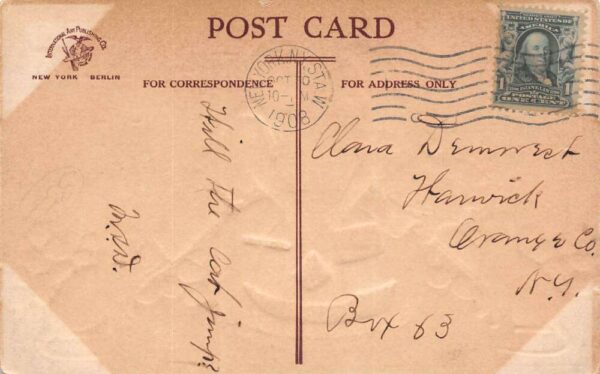 POST CARD
INTERNATIONAL ART PUBLISHING CO.
NEW YORK BERLIN
FOR CORRESPONDENCE
FOR ADDRESS ONLY
NEW YORK, N.Y. STA. W
OCT
10-
1908
UNITED STATES OF
AMERICA
FRANKLIN
ONE CENT
Will the cat jump?
Clara
Harwick
Orange Co.
N.Y.
Box 63